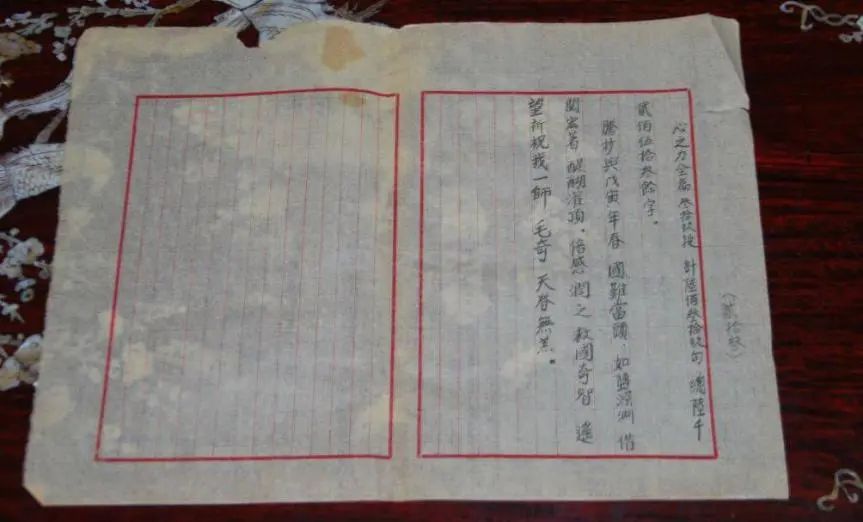 （貳拾玖）
心之力全篇 叁拾玖段 計陸佰叁拾玖句 總陸千
貳佰伍拾叁餘字。
謄抄與戊寅年春 國難當頭，如墮深淵 借
閱宏著 醍醐灌頂，倍感 潤之 救國奇智 遙
望祈祝我一師 毛奇 天眷無恙。